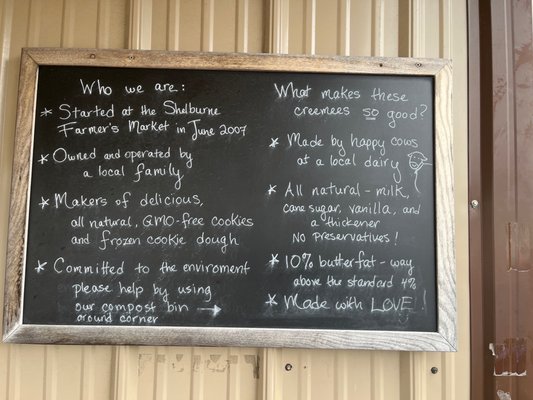 Who we are:
* Started at the Shelburne
Farmer's Market in June 2007
* Owned and operated by
a local family
* Makers of delicious,
all natural, GMO-free cookies
and frozen cookie dough
* Committed to the enviroment
please help by using
our compost bin →
around corner
What makes these
creemees so good?
* Made by happy cows
at a local dairy
* All natural - milk,
cane sugar, vanilla, and
a thickener
NO PRESERVATIVES!
* 10% butterfat - way
above the standard 4%
* Made with LOVE!